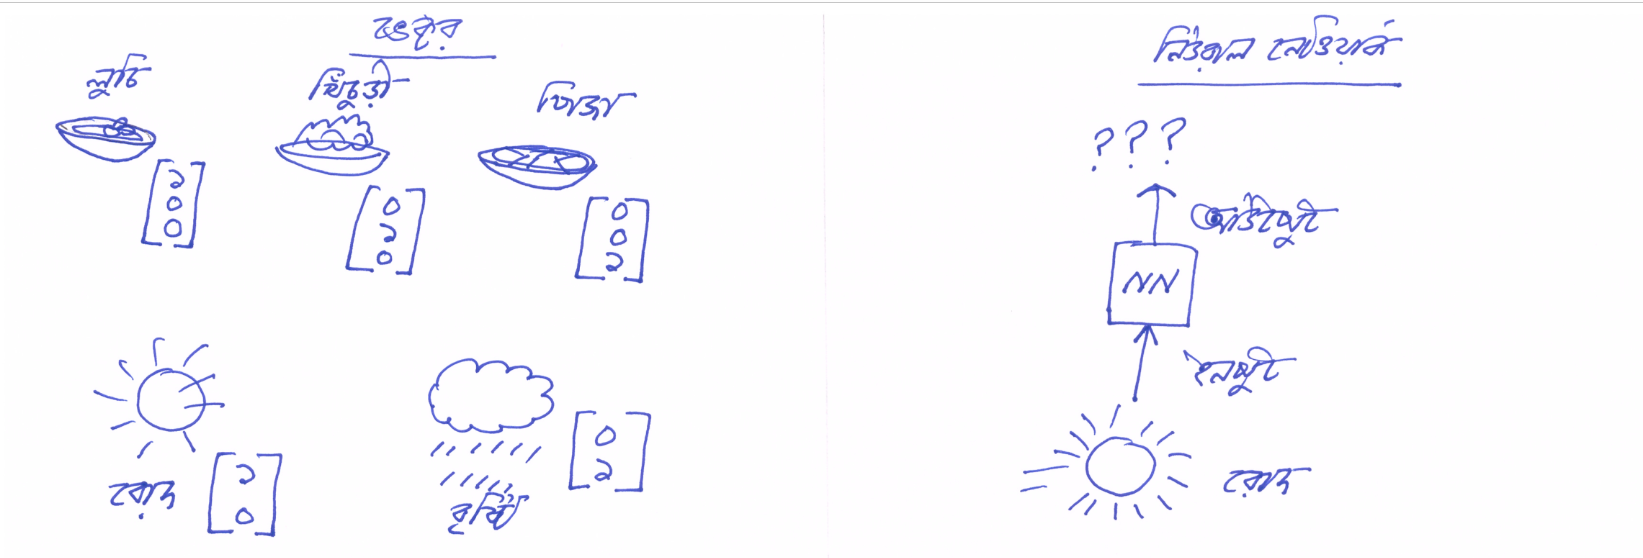 ভেক্টর
লুচি
খিঁচুড়ী
পিজা
[১ ০ ০]
[০ ১ ০]
[০ ০ ১]
রোদ
[১ ০]
বৃষ্টি
[০ ১]
নিউরাল নেটওয়ার্ক
? ? ?
আউটপুট
NN
ইনপুট
রোদ